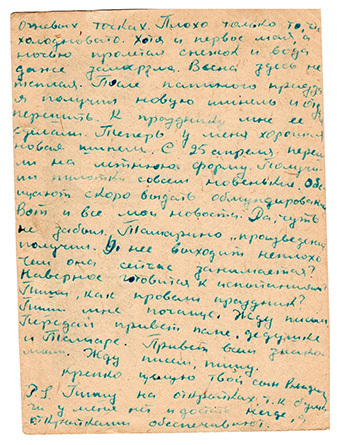 огневых точках. Плохо только то, что
холодновато. Хотя и первое мая а
ночью пролетал снежок и вода
даже замерзла. Весна здесь не
теплая. После папиного приезда
я получил новую шинель и отдал
перешить. К празднику мне ее
сделали. Теперь у меня хорошая
новая шинель. С 25 апреля переш
ли на летнюю форму. Получи
ли пилотки совсем новенькие. Обе
щают скоро выдать обмундирован
Вот и все мои новости. Да, чуть
не забыл. Тамарино „произведение
получил. У нее выходит неплохо
Чем она сейчас занимается?
Наверное готовится к испытаниям?
Пиши, как провели праздник?
Пиши мне почаще. Жду писем
Передай привет папе, дедушке
и Тамаре. Привет всем знако
мым. Жду писем, пишу.
крепко целую твой сын
P.S. Пишу на открытках, т.к. бума
ги у меня нет и достать негде, а
открытками обеспечивают.